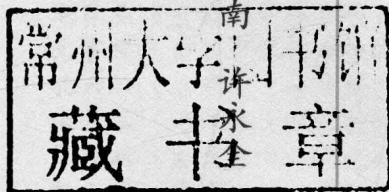 常州大学图书馆
藏书章
南
许永全